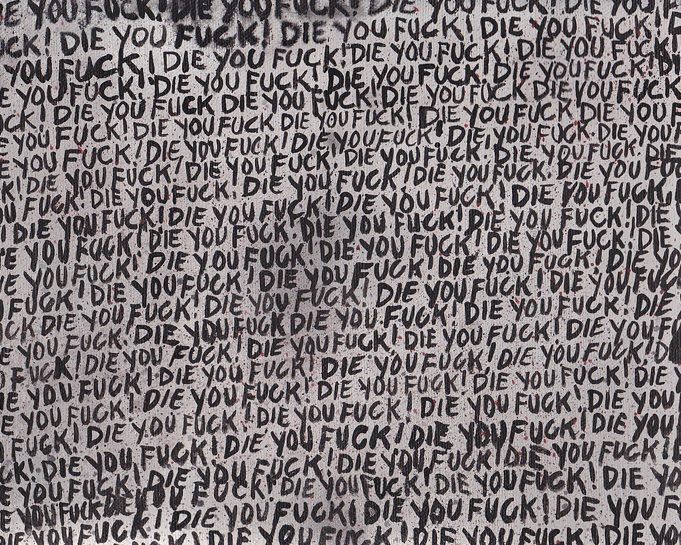 DIE YOU FUCK! DIE YOU FUCK! DIE YOU FUCK! DIE YOU
UCK! DIE YOU FUCK! DIE YOU FUCK! DIE YOU FUCK!
YOU FUCK! DIE YOU FUCK! DIE YOU FUCK! DIE YOU FUCK!
E YOU FUCK! DIE YOU FUCK! DIE YOU FUCK! DIE YOU FUCK
CK! DIE YOU FUCK DIE YOU FUCK! DIE YOU FUCK! DIE YOU FUCK!
YOU FUCK! DIE YOU FUCK DIE YOU FUCK! DIE YOU FUCK! DIE YOU
E YOU FUCK! DIE YOU FUCK! DIE YOU FUCK! DIE YOU FUCK! DIE YOU FU
K! DIE YOU FUCK! DIE YOU FUCK! DIE YOU FUCK! DIE YOU FUCK!
U FUCK! DIE YOU FUCK! DIE YOU FUCK! DIE YOU FUCK! DIE
DIE YOU FUCK! DIE YOU FUCK! DIE YOU FUCK! DIE YOU FUCK! DIE
E YOU FUCK! DIE YOU FUCK! DIE YOU FUCK! DIE YOU FUCK! DIE YOU
YOU FUCK! DIE YOU FUCK! DIE YOU FUCK! DIE YOU FUCK! DIE YOU FUC
FUCK! DIE YOU FUCK! DIE YOU FUCK! DIE YOU FUCK! DIE
UCK! DIE YOU FUCK! DIE YOU FUCK DIE YOU FUCK! DIE YOU FUCK! DIE YOU F
YOU FUCK! DIE YOU FUCK! DIE YOU FUCK! DIE YOU FUCK! D
FUCK! DIE YOU FUCK! DIE YOU FUCK! DIE YOU FUCK! DIE YOU FUCK! DIE
YOU FUCK! DIE YOU FUCK! DIE YOU FUCK! DIE YOU FUCK! DIE YOU
E YOU FUCK! DIE YOU FUCK! DIE YOU FUCK! DIE YOU FUCK! DIE YOU
FUCK! DIE YOU FUCK! DIE YOU FUCK! DIE YOU FUCK! DIE YOU FUCK!
K! DIE YOU FUCK! DIE YOU FUCK! DIE YOU FUCK! DIE YOU FUCK!
E YOU FUCK! DIE YOU FUCK! DIE YOU FUCK! DIE YOU FUCK! DIE
YOU FUCK! DIE YOU FUCK! DIE YOU FUCK! DIE YOU FUCK! DIE YOU F
DIE YOU FUCK! DIE YOU FUCK! DIE YOU FUCK! DIE YOU